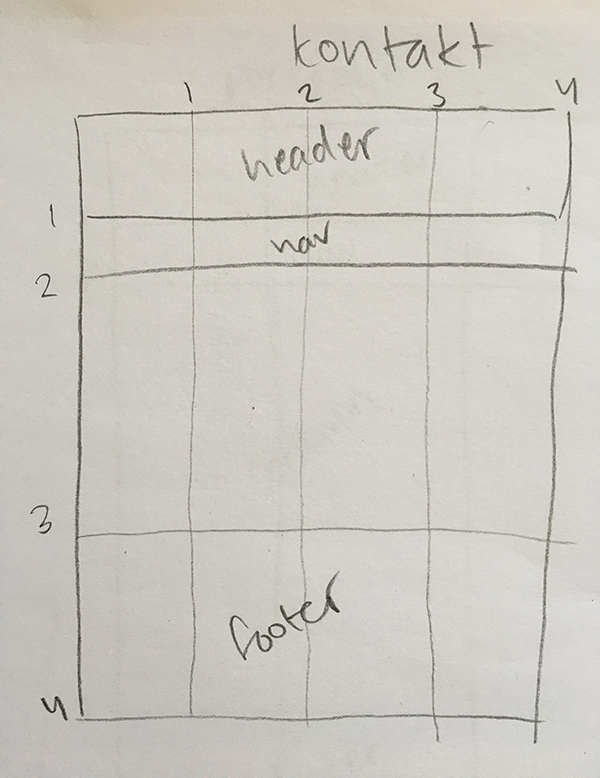 kontakt
1 2 3 4
header
1
nav
2
3
footer
4